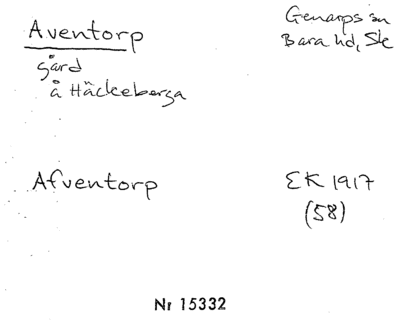 Aventorp
gård
å Häckeberga
Genarps sn
Bara hd, Sk
Afventorp
EK 1917
(58)
Nr 15332